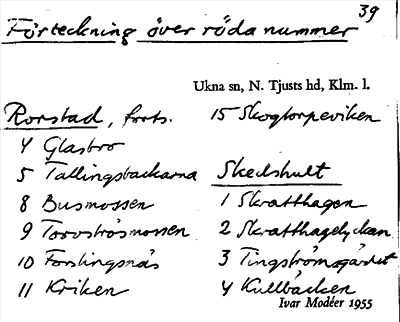 39
Förteckning över röda nummer
Ukna sn, N. Tjusts hd, Klm. l.
Rorstad, forts.
4 Glasbro
5 Tallingsbackarna
8 Busmossen
9 Torvströsmossen
10 Forslingsnäs
11 Kriken
15 Skogtorpeviken
Skedshult
1 Skratthagen
2 Skratthagelyckan
3 Tingströmsgärdet
4 Kullbäcken
Ivar Modéer 1955